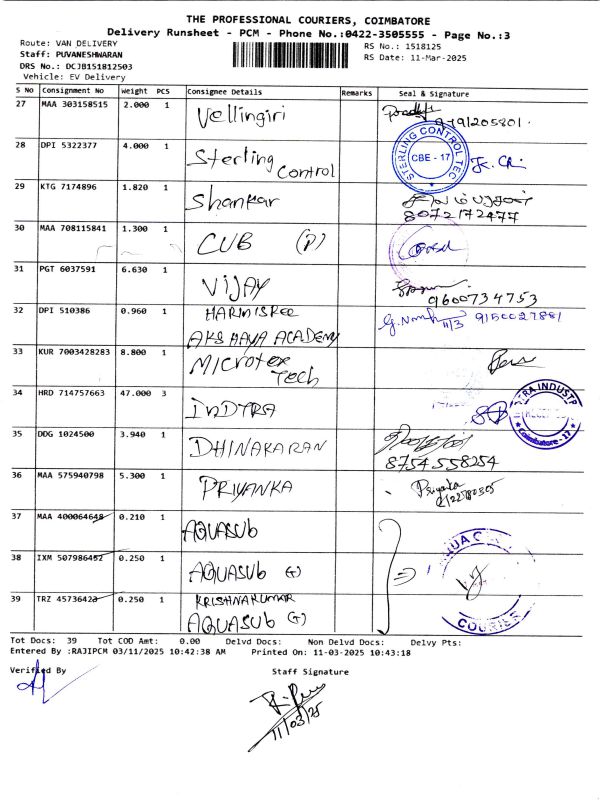 THE PROFESSIONAL COURIERS, COIMBATORE
Delivery Runsheet - PCM - Phone No.:0422-3505555 - Page No.:3
Route: VAN DELIVERY
RS No.: 1518125
Staff: PUVANESHWARAN
RS Date: 11-Mar-2025
DRS No.: DCJB151812503
Vehicle: EV Delivery
S No Consignment No Weight PCS Consignee Details Remarks Seal & Signature
27 MAA 303158515 2.000 1 Vellingiri 9791205801
28 DPI 5322377 4.000 1 Sterling Control STERLING CONTROL TEC CBE - 17
29 KTG 7174896 1.820 1 Shankar 8072172477
30 MAA 708115841 1.300 1 CUB (P)
31 PGT 6037591 6.630 1 VIJAY 9600734753
32 DPI 510386 0.960 1 HARMISREE 11/3 9150027881
AKSHAYA ACADEMY
33 KUR 7003428283 8.800 1 MICROTEX
Tech
34 HRD 714757663 47.000 3 INDTRA INDUSTR Coimbatore-17
35 DDG 1024500 3.940 1 DHINAKARAN 8754558254
36 MAA 575940798 5.300 1 PRIYANKA Priyanka
37 MAA 400064648 0.210 1 AQUASUb
38 IXM 507986452 0.250 1 AQUASUb (1)
39 TRZ 45736423 0.250 1 KRISHNAKUMAR COURIER
AQUASUb (1)
Tot Docs: 39 Tot COD Amt: 0.00 Delvd Docs: Non Delvd Docs: Delvy Pts:
Entered By :RAJIPCM 03/11/2025 10:42:38 AM Printed On: 11-03-2025 10:43:18
Verified By Staff Signature
11/03/25